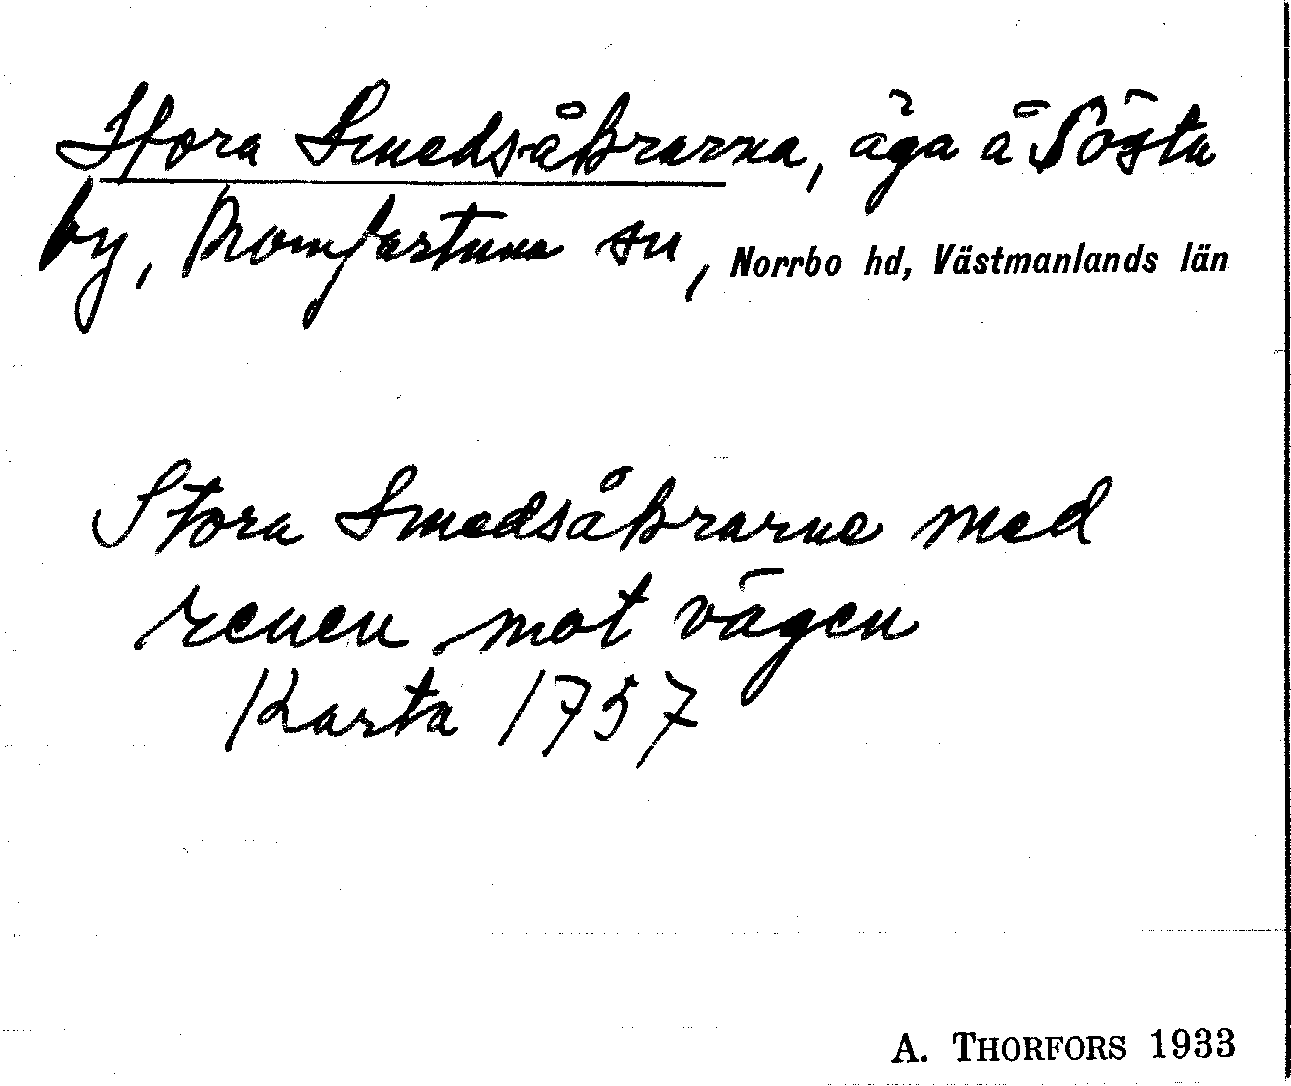 Stora Smedsåkrarna, äga å Sösta
by, Romfartuna sn, Norrbo hd, Västmanlands län
Stora Smedsåkrarne med
renen mot vägen
Karta 1757
A. THORFORS 1933